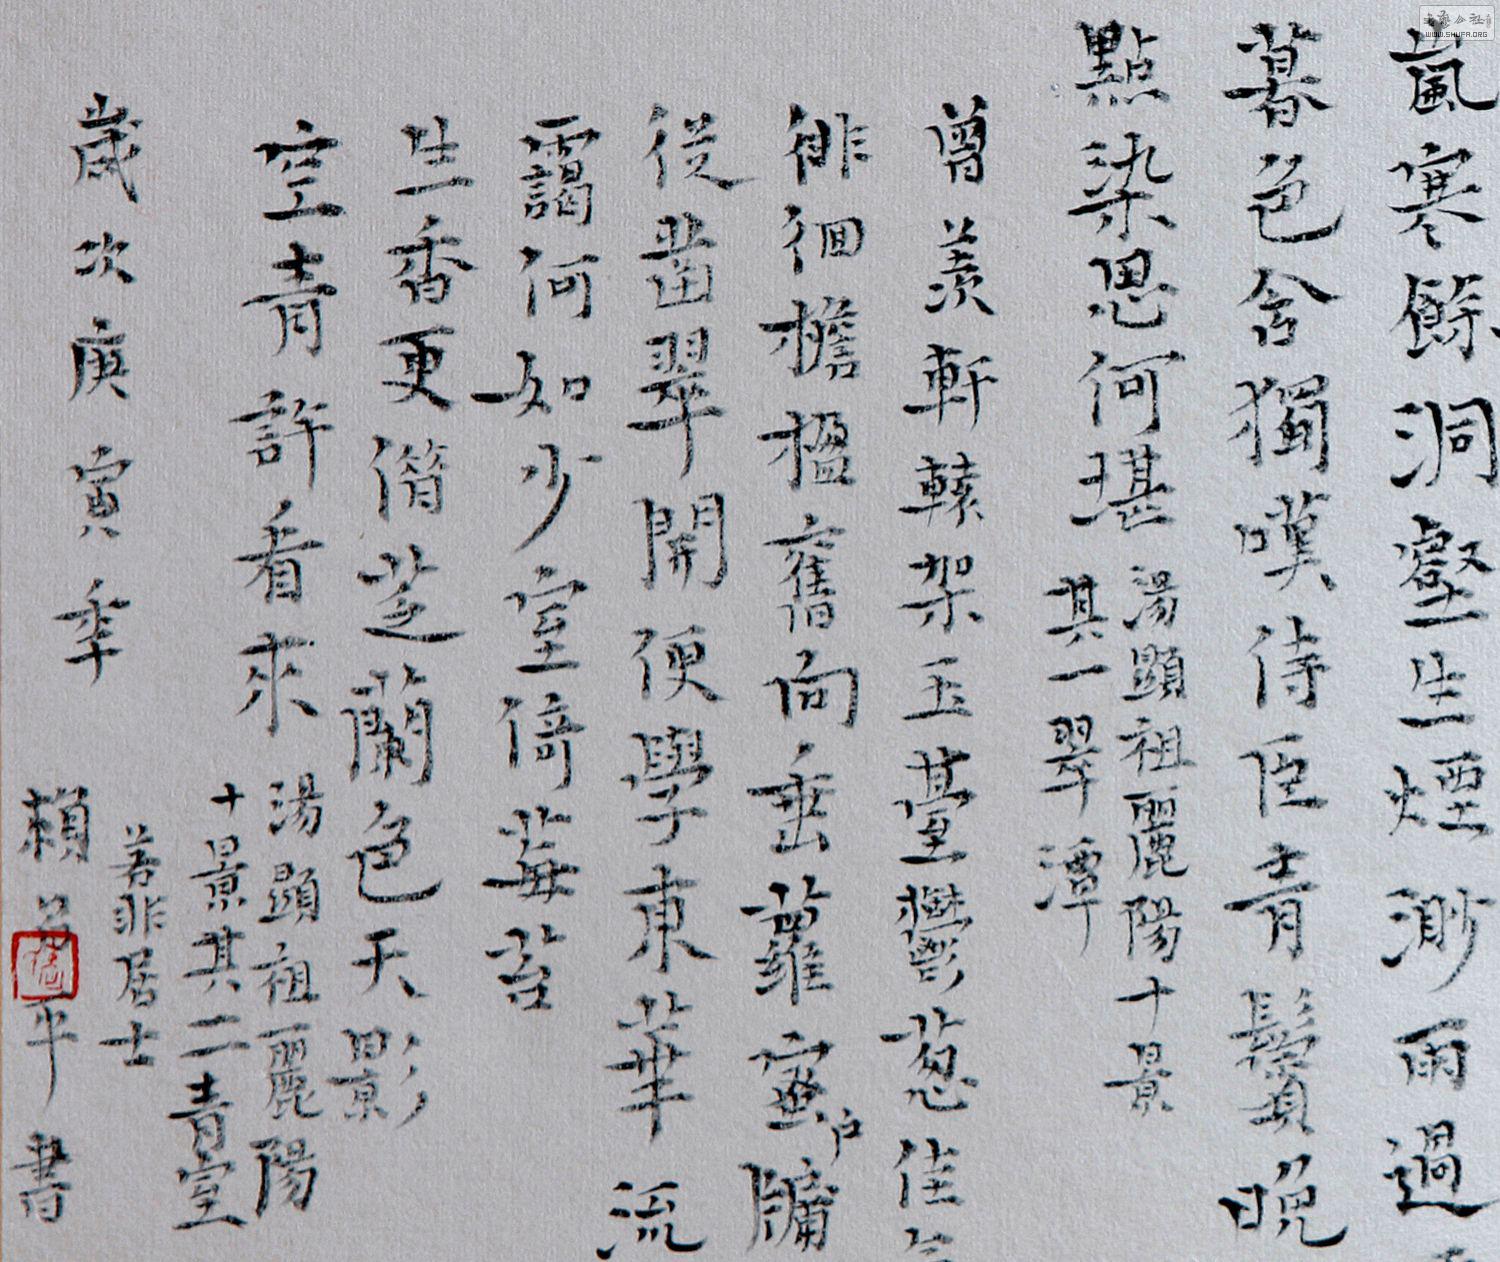 嵐寒餘洞壑生煙渺雨過
暮色含獨嘆侍臣青鬢晚
點染思何堪
湯顯祖麗陽十景
其一翠潭
曾羨軒轅架玉臺鬱蔥佳
徘徊檐楹舊向垂蘿蜜戶牖
從凿翠開便學東華流
靄何如少室倚莓苔
生香更潛芝蘭色天影
空青許看來
湯顯祖麗陽
十景其二青室
歲次庚寅季
若非居士
賴平書
土藝公社
WWW.SHUFA.ORG